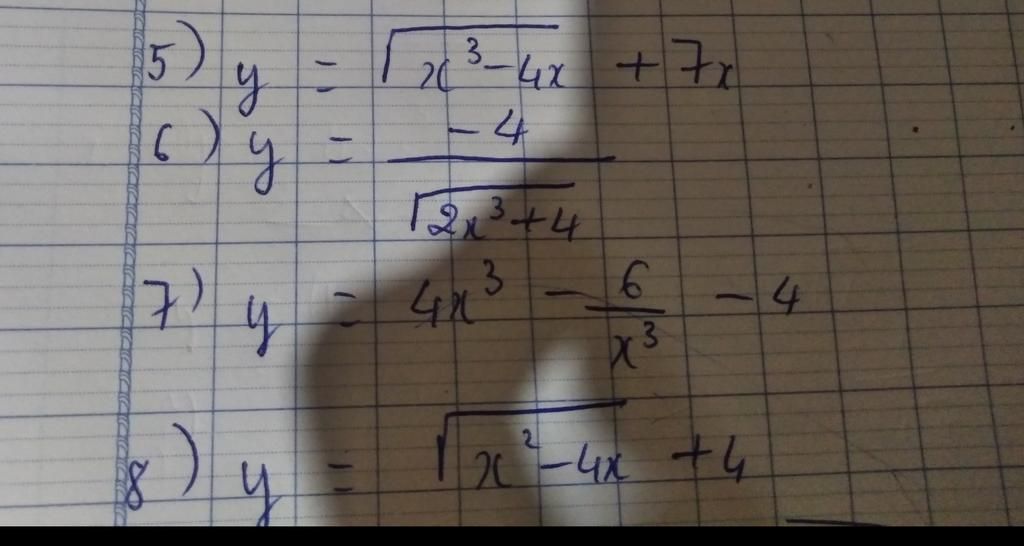 5) y = √(x³-4x) + 7x
6) y = -4/√(2x³+4)
7) y = 4x³ - 6/x³ - 4
8) y = √(x²-4x) + 4